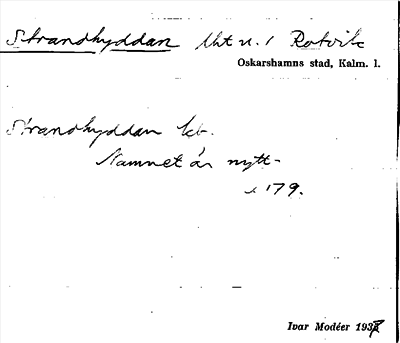 Strandhyddan Lht u. 1 Rotvik
Oskarshamns stad, Kalm. l.
Strandhyddan kb.
Namnet är nytt
179.
Ivar Modéer 1937